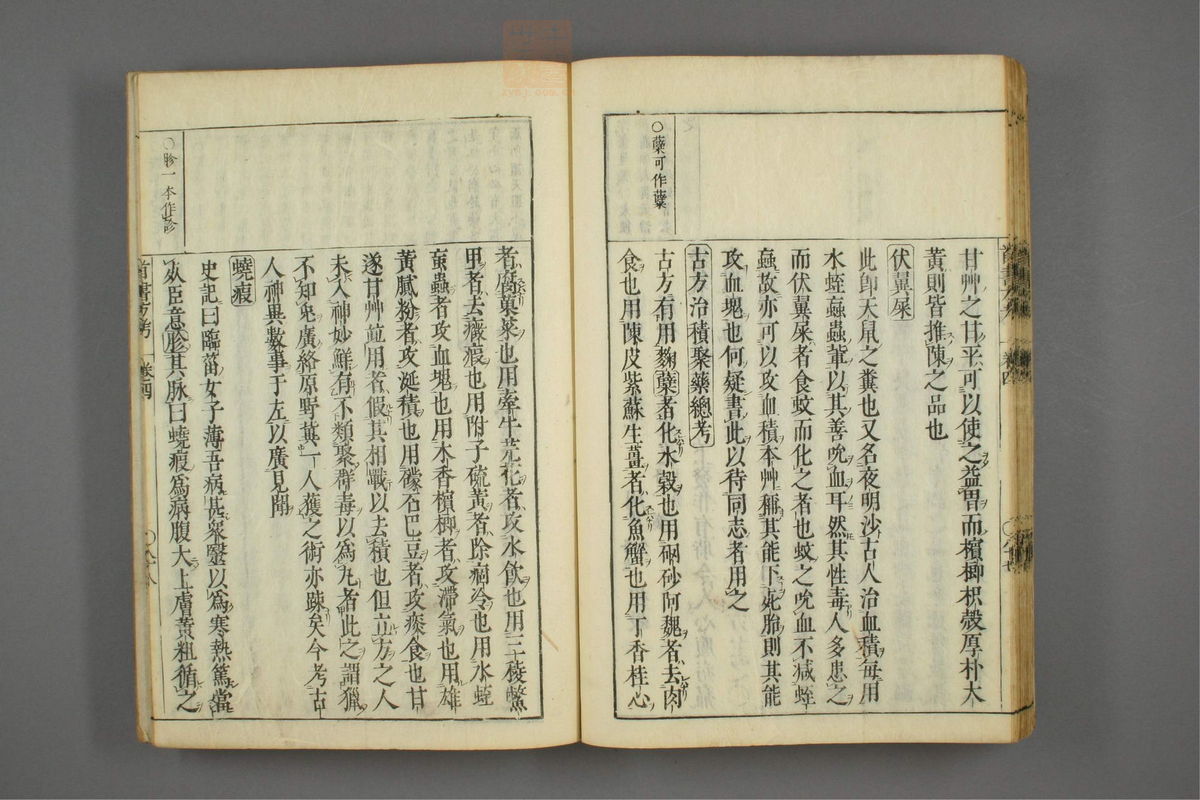 ○蘗可作糵
甘艸之甘平可以使之益胃而檳榔枳殼厚朴大
黃則皆推陳之品也
伏翼屎
此卽天鼠之糞也又名夜明沙古人治血積每用
水蛭䖟蟲輩以其善吮血耳然其性毒人多患之
而伏翼屎者食蚊而化之者也蚊之吮血不減蛭
䖟故亦可以攻血積本艸稱其能下死胎則其能
攻血塊也何疑書此以待同志者用之
古方治積聚藥總考
古方有用麴蘗者化水穀也用硇砂阿魏者去肉
食也用陳皮紫蘇生薑者化魚蟹也用丁香桂心
○胗一本作診
者腐菓菜也用牽牛芫花者攻水飲也用三稜鱉
甲者去癥瘕也用附子硫黃者除痼冷也用水蛭
䖟蟲者攻血塊也用木香檳榔者攻滯氣也用雄
黃膩粉者攻涎積也用礞石巴豆者攻痰食也甘
遂甘艸並用者假其相戰以去積也但立方之人
未入神妙鮮有不類聚群毒以爲丸者此之謂獵
不知兔廣絡原野冀一人獲之術亦踈矣今考古
人神異數事于左以廣見聞
蟯瘕
史記曰臨菑女子薄吾病甚衆醫以爲寒熱篤當
死臣意胗其脉曰蟯瘕爲病腹大上膚黃粗循之